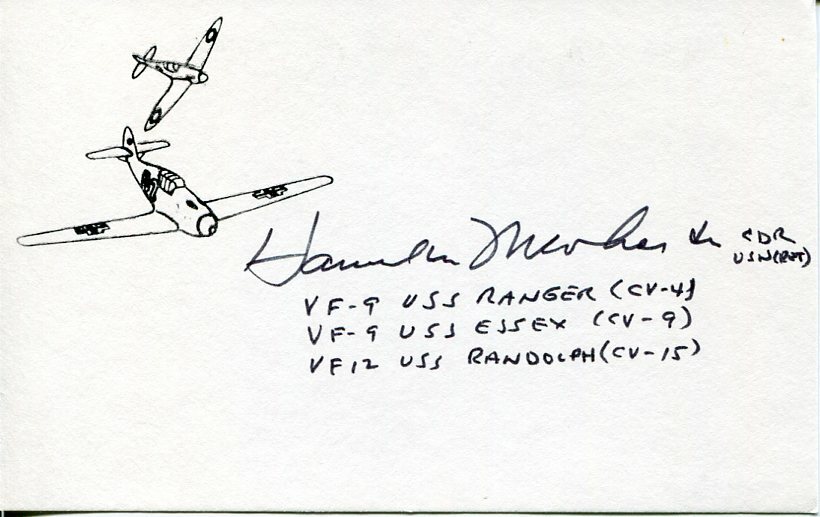 Hamilton McWhorter CDR
USN(RET)
VF-9 USS RANGER (CV-4)
VF-9 USS ESSEX (CV-9)
VF12 USS RANDOLPH (CV-15)